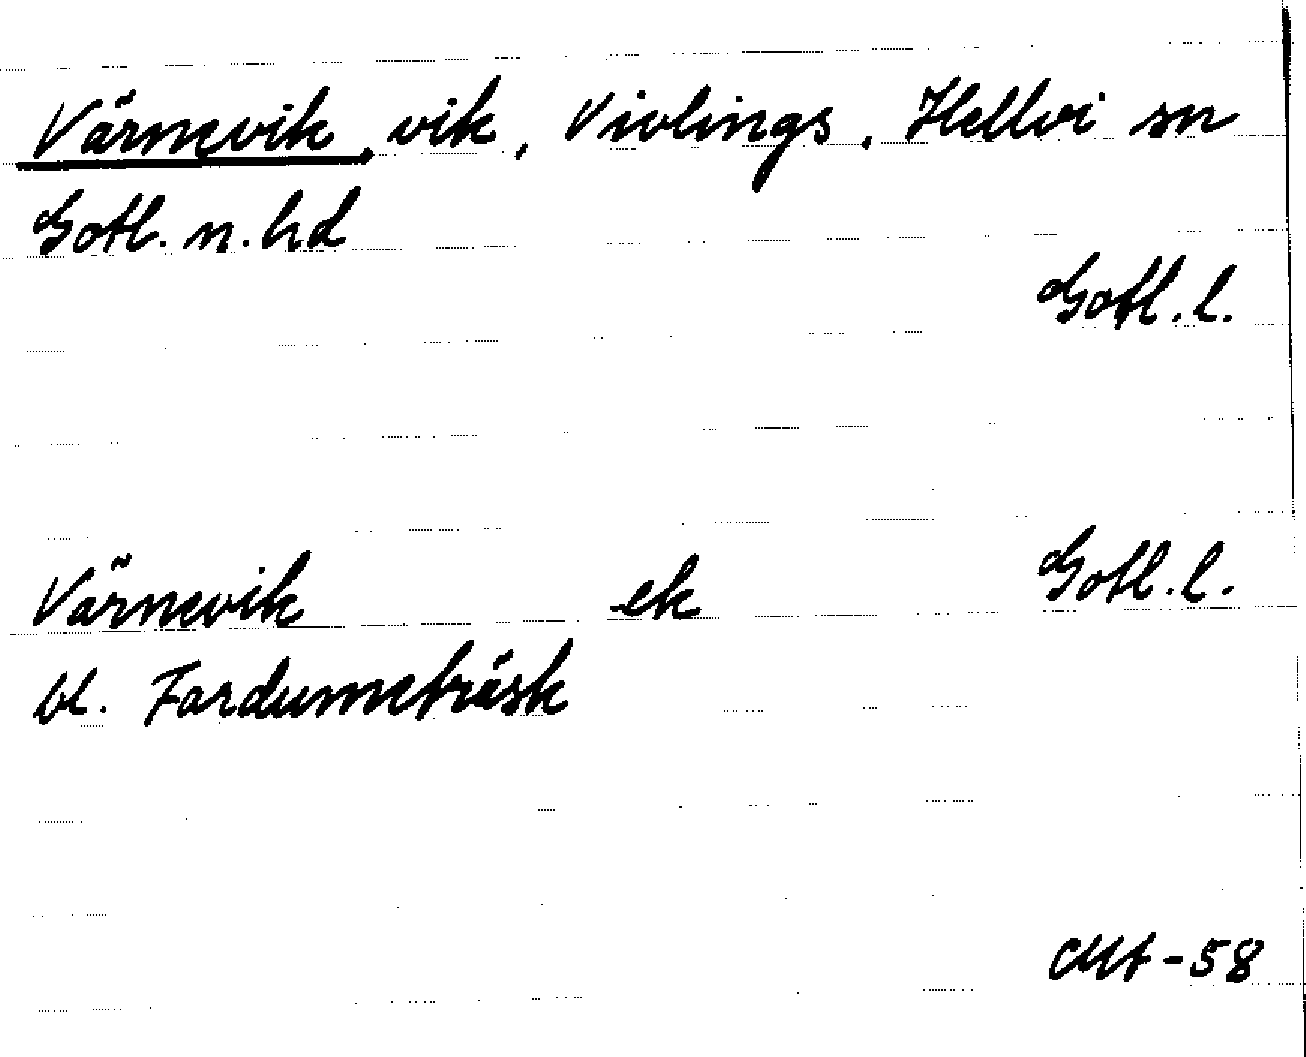 Värnevik, vik, Vivlings, Hellvi sn
Gotl. n. hd
Gotl. l.
Värnevik ek Gotl. l.
bl. Fardumeträsk
-58